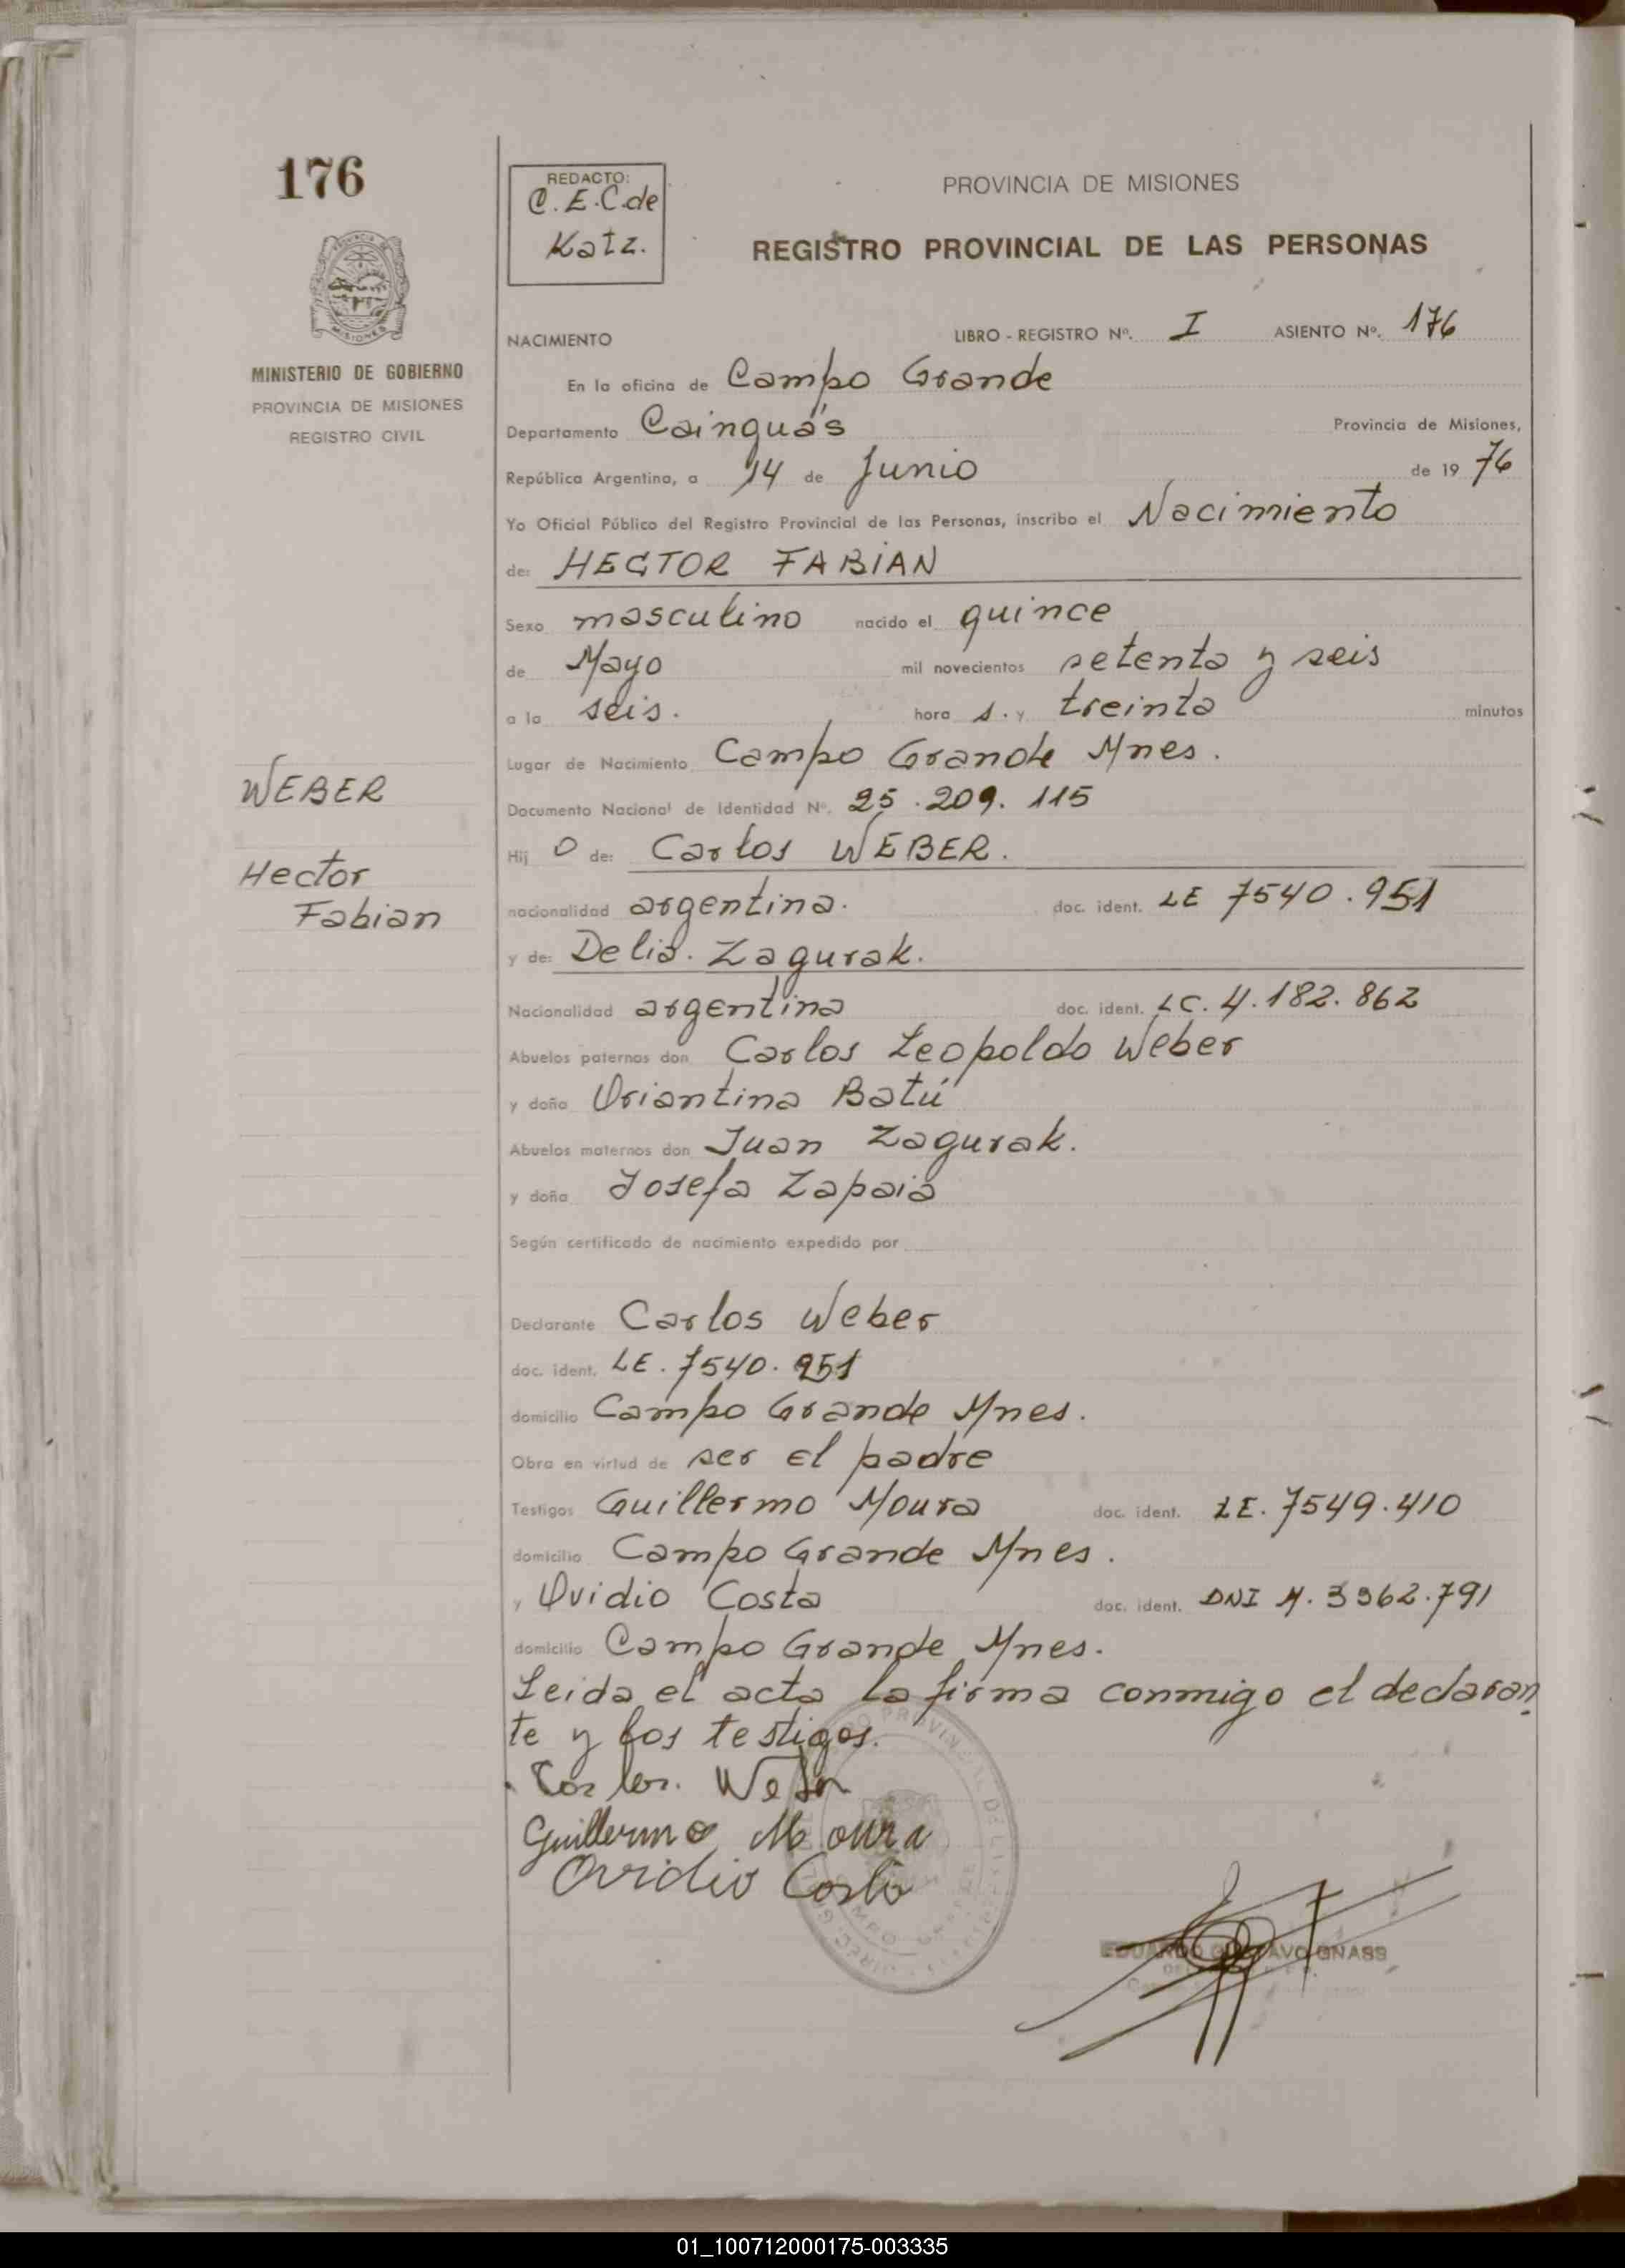 176
MINISTERIO DE GOBIERNO
PROVINCIA DE MISIONES
REGISTRO CIVIL
WEBER
Hector
Fabian
REDACTO:
C. E. C. de
Katz.
PROVINCIA DE MISIONES
REGISTRO PROVINCIAL DE LAS PERSONAS
NACIMIENTO LIBRO - REGISTRO Nº. I ASIENTO Nº. 176
En la oficina de Campo Grande
Departamento Cainguás Provincia de Misiones,
República Argentina, a 14 de Junio de 19 76
Yo Oficial Público del Registro Provincial de las Personas, inscribo el Nacimiento
de: HECTOR FABIAN
Sexo masculino nacido el quince
de Mayo mil novecientos setenta y seis
a la seis. hora s. y treinta minutos
Lugar de Nacimiento Campo Grande Mnes.
Documento Nacional de Identidad Nº. 25.209.115
Hij o de: Carlos WEBER.
nacionalidad argentina. doc. ident. LE 7540.951
y de: Delia. Zagurak.
Nacionalidad argentina doc. ident. LC. 4.182.862
Abuelos paternos don Carlos Leopoldo Weber
y doña Oriantina Batú
Abuelos maternos don Juan Zagurak.
y doña Josefa Zapaia
Según certificado de nacimiento expedido por
Declarante Carlos Weber
doc. ident. LE. 7540.951
domicilio Campo Grande Mnes.
Obra en virtud de ser el padre
Testigos Guillermo Moura doc. ident. LE. 7549.410
domicilio Campo Grande Mnes.
y Ovidio Costa doc. ident. DNI M. 3362.791
domicilio Campo Grande Mnes.
Leida el acta la firma conmigo el declaran
te y los testigos.
Carlos. Weber
Guillermo Moura
Ovidio Costa
EDUARDO GUSTAVO GNASS
01_100712000175-003335